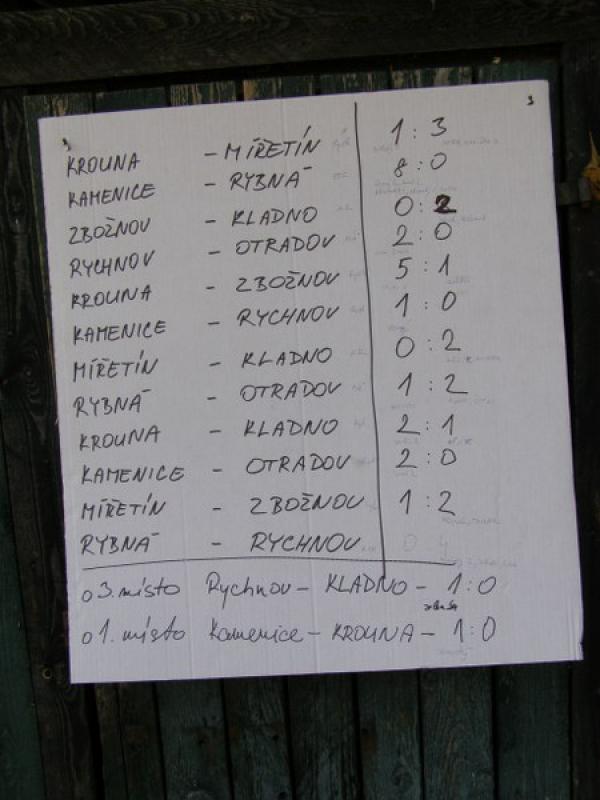 KROUNA - MÍŘETÍN 1 : 3
KAMENICE - RYBNÁ 8 : 0
ZBOŽNOV - KLADNO 0 : 2
RYCHNOV - OTRADOV 2 : 0
KROUNA - ZBOŽNOV 5 : 1
KAMENICE - RYCHNOV 1 : 0
MÍŘETÍN - KLADNO 0 : 2
RYBNÁ - OTRADOV 1 : 2
KROUNA - KLADNO 2 : 1
KAMENICE - OTRADOV 2 : 0
MÍŘETÍN - ZBOŽNOV 1 : 2
RYBNÁ - RYCHNOV 0 4
o 3. místo Rychnov - KLADNO - 1 : 0
o 1. místo Kamenice - KROUNA - 1 : 0